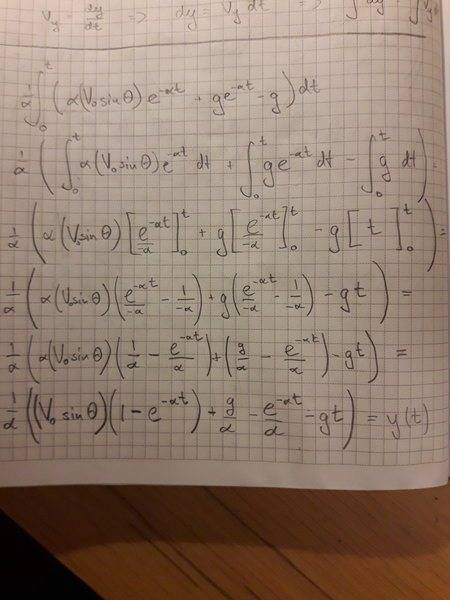 V_y = dy/dt => dy = V_y dt => ∫dy = ∫V_y
1/α ∫_0^t (α(V₀ sin θ) e^{-αt} + g e^{-αt} - g) dt
1/α (∫_0^t α(V₀ sin θ) e^{-αt} dt + ∫_0^t g e^{-αt} dt - ∫_0^t g dt) =
1/α (α(V₀ sin θ) [e^{-αt}/-α]_0^t + g [e^{-αt}/-α]_0^t - g [t]_0^t) =
1/α (α(V₀ sin θ) (e^{-αt}/-α - 1/-α) + g (e^{-αt}/-α - 1/-α) - gt) =
1/α (α(V₀ sin θ) (1/α - e^{-αt}/α) + (g/α - e^{-αt}/α) - gt) =
1/α ((V₀ sin θ) (1 - e^{-αt}) + g/α - e^{-αt}/α - gt) = y(t)